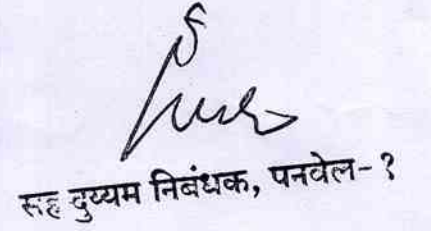 सह दुय्यम निबंधक, पनवेल-१